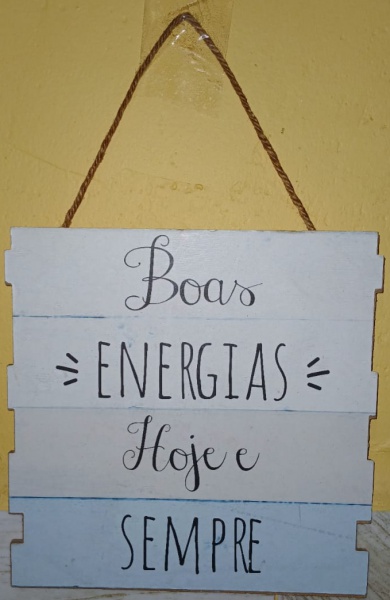 Boas
ENERGIAS
Hoje e
SEMPRE